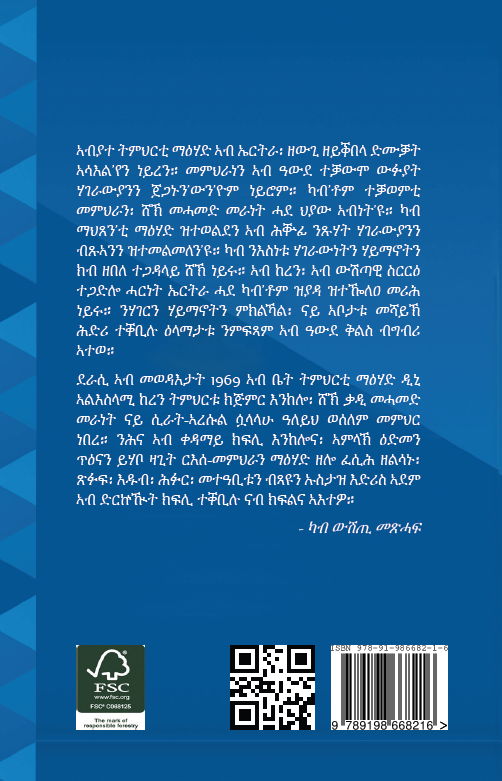 ኣብያተ ትምህርቲ ማዕሃድ ኣብ ኤርትራ፡ ዘውጊ ዘይቕበላ ድሙቓት
ኣሳእል'የን ነይረን። መምህራነን ኣብ ዓውደ ተቓውሞ ውፉያት
ሃገራውያንን ጀጋኑን'ውን'ዮም ነይሮም። ካብ'ቶም ተቓወምቲ
መምህራን፡ ሸኽ መሓመድ መራነት ሓደ ህያው ኣብነት'ዩ። ካብ
ማህጸን'ቲ ማዕሃድ ዝተወልደን ኣብ ሕቝፊ ንጹሃት ሃገራውያንን
ብጹኣንን ዝተመልመለን'ዩ። ካብ ንእስነቱ ሃገራውነትን ሃይማኖትን
ክብ ዘበለ ተጋዳላይ ሸኽ ነይሩ። ኣብ ከረን፡ ኣብ ውሽጣዊ ስርርዕ
ተጋድሎ ሓርነት ኤርትራ ሓደ ካብ'ቶም ዝያዳ ዝተኸለዐ መሪሕ
ነይሩ። ንሃገርን ሃይማኖትን ምክልኻል፡ ናይ ኣቦታቱ መሻይኽ
ሕድሪ ተቐቢሉ ዕላማታቱ ንምፍጻም ኣብ ዓውደ ቅልስ ብግብሪ
ኣተወ።
ደራሲ ኣብ መወዳእታት 1969 ኣብ ቤት ትምህርቲ ማዕሃድ ዲኒ
ኣልእስላሚ ከረን ትምህርቱ ክጅምር እንከሎ፡ ሸኽ ቃዲ መሓመድ
መራነት ናይ ሲራት-ኣረሱል ሷላላሁ ዓለይህ ወሰለም መምህር
ነበረ። ንሕና ኣብ ቀዳማይ ክፍሊ እንከሎና፡ ኣምላኽ ዕድመን
ጥዕናን ይሃቦ ዛጊት ርእሰ-መምህራን ማዕሃድ ዘሎ ፈሲሕ ዘልሳኑ፡
ጽፉፍ፡ እዱብ፡ ሕፉር፡ መተዓቢቱን ብጻዩን ኡስታዝ እድሪስ ኣደም
ኣብ ድርኩዅት ክፍሊ ተቐቢሉ ናብ ክፍልና ኣእተዎ።
- ካብ ውሽጢ መጽሓፍ
ISBN 978-91-986682-1-6
FSC
www.fsc.org
FSC® C068125
The mark of
responsible forestry
9 789198 668216 >